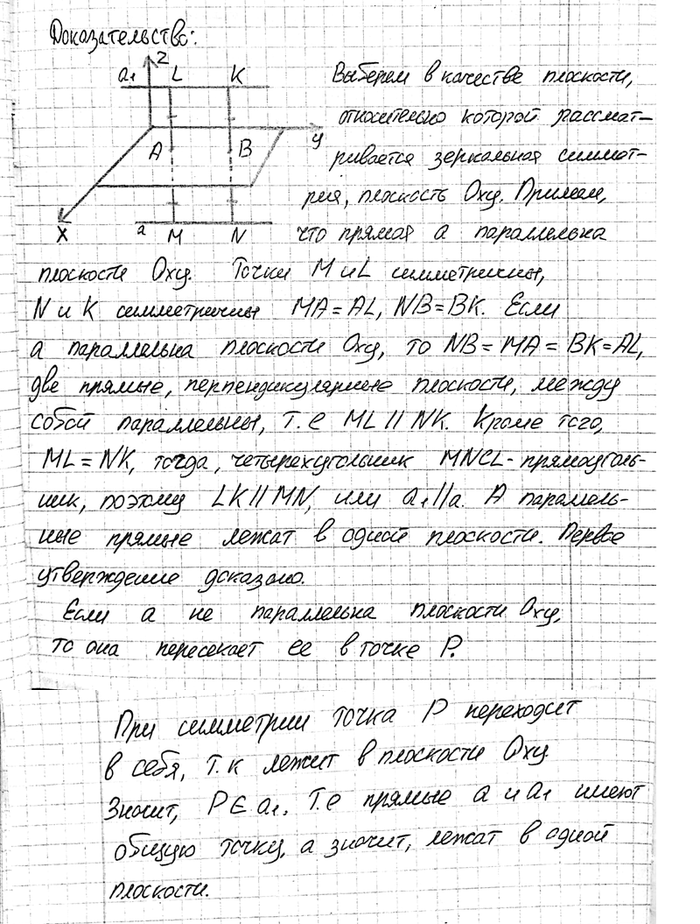 Доказательство:
z
a₁ L K
Выберем в качестве плоскости,
относительно которой рассмат-
A B y
ривается зеркальная симмет-
рия, плоскость Oxy. Примем,
x a M N
что прямая a параллельна
плоскости Oxy. Точки M и L симметричны,
N и K симметричны MA = AL, NB = BK. Если
a параллельна плоскости Oxy, то NB = MA = BK = AL,
две прямые, перпендикулярные плоскости, между
собой параллельны, т.е ML // NK. Кроме того,
ML = NK, тогда, четырехугольник MNCL - прямоуголь-
ник, поэтому LK // MN, или a₁ // a. А параллель-
ные прямые лежат в одной плоскости. Первое
утверждение доказано.
Если a не параллельна плоскости Oxy,
то она пересекает ее в точке P.
При симметрии точка P переходит
в себя, т.к лежит в плоскости Oxy
Значит, P ∈ a₁. Т.е прямые a и a₁ имеют
общую точку, а значит, лежат в одной
плоскости.